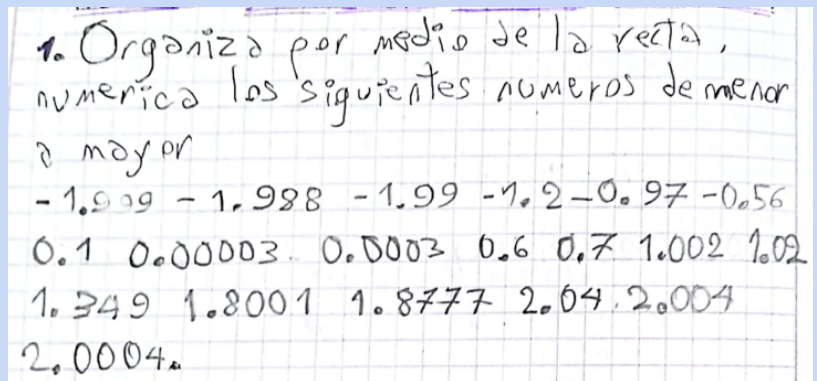 1. Organiza por medio de la recta,
numerica los siguientes numeros de menor
a mayor
- 1.999 - 1.988 - 1.99 - 1.2 - 0.97 - 0.56
0.1 0.00003. 0.0003 0.6 0.7 1.002 1.02
1.349 1.8001 1.8777 2.04. 2.004
2.0004.